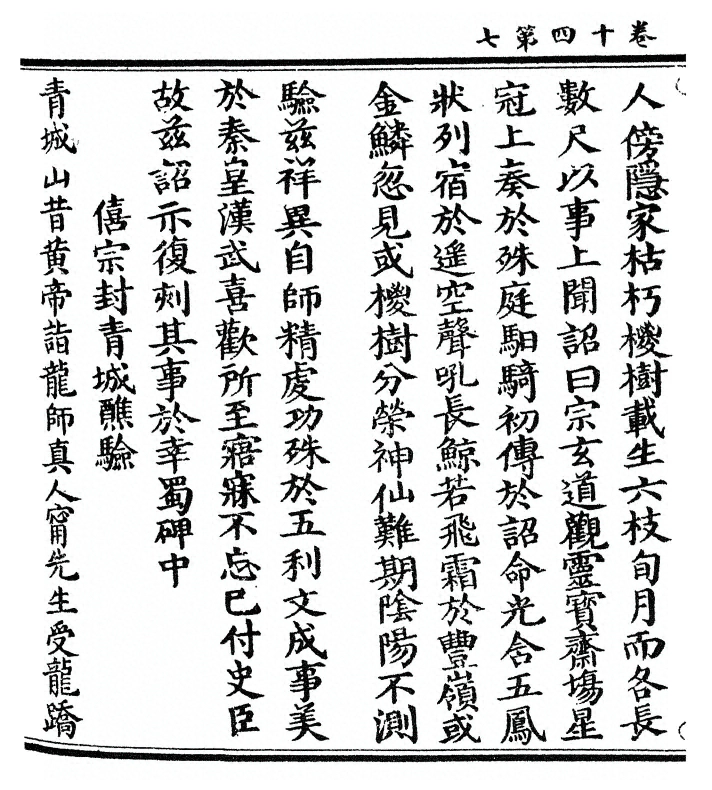 卷十四第七
人傍隱家枯朽㮨樹載生六枝旬月而各長
數尺以事上聞詔曰宗玄道觀靈寶齋塲星
冠上奏於殊庭馹騎初傳於詔命光含五鳳
狀列宿於遥空聲吼長鯨若飛霜於豐嶺或
金鱗忽見或㮨樹分榮神仙難期隂陽不測
驗兹祥異自師精䖍功殊於五利文成事美
於秦皇漢武喜歡所至寤寐不忘已付史臣
故兹詔示復刻其事於幸蜀碑中
僖宗封青城醮驗
青城山昔黄帝詣龍師真人甯先生受龍蹻